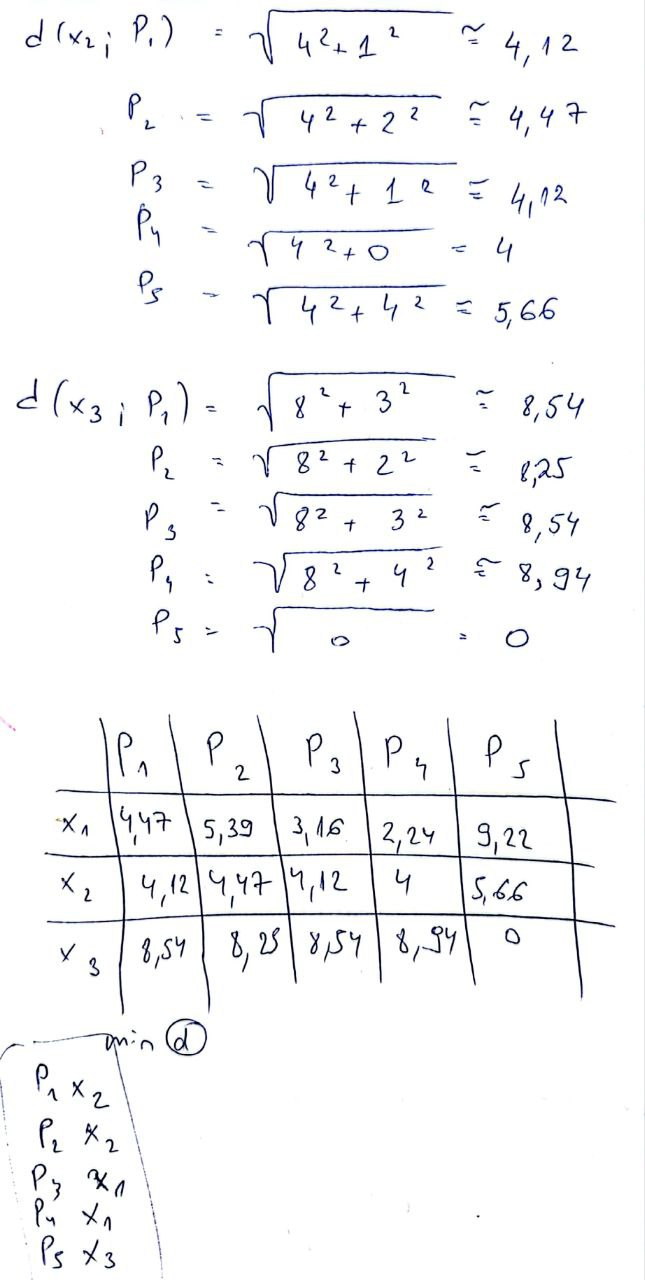 d(x₂; P₁) = √4²+1² ≅ 4,12
P₂ = √4²+2² ≅ 4,47
P₃ = √4²+1² ≅ 4,12
P₄ = √4²+0 = 4
P₅ = √4²+4² = 5,66
d(x₃; P₁) = √8²+3² ≅ 8,54
P₂ = √8²+2² ≅ 8,25
P₃ = √8²+3² ≅ 8,54
P₄ = √8²+4² ≅ 8,94
P₅ = √0 = 0
P₁ P₂ P₃ P₄ P₅
x₁ 4,47 5,39 3,16 2,24 9,22
x₂ 4,12 4,47 4,12 4 5,66
x₃ 8,54 8,25 8,54 8,94 0
min d
P₁ x₂
P₂ x₂
P₃ x₁
P₄ x₁
P₅ x₃